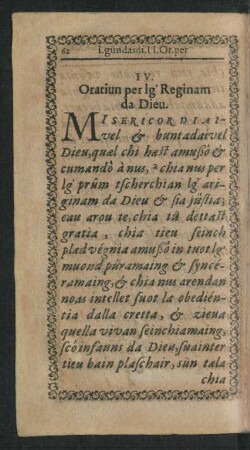 62 Lgundasdi. II. Or. per
IV.
Oratiun per lg' Reginam
da Dieu.
MISERICORDIAI-
vel & buntadaivel
Dieu, qual chi hæst amussô &
cumandô à nus, chia nus per
lg' prüm tscherchian lg' ari-
ginam da Dieu & sia jüstia;
eau arou te, chia tü dettast
gratia, chia tieu seinch
plad végnia amussô in tuot lg'
muond püramaing & syncé-
ramaing, & chia nus arendan
noas intellet suot la obedién-
tia dalla cretta, & zieua
quella vivan seinchiamaing,
scó infauns da Dieu, suainter
tieu bain plaschair, sün tala
chia